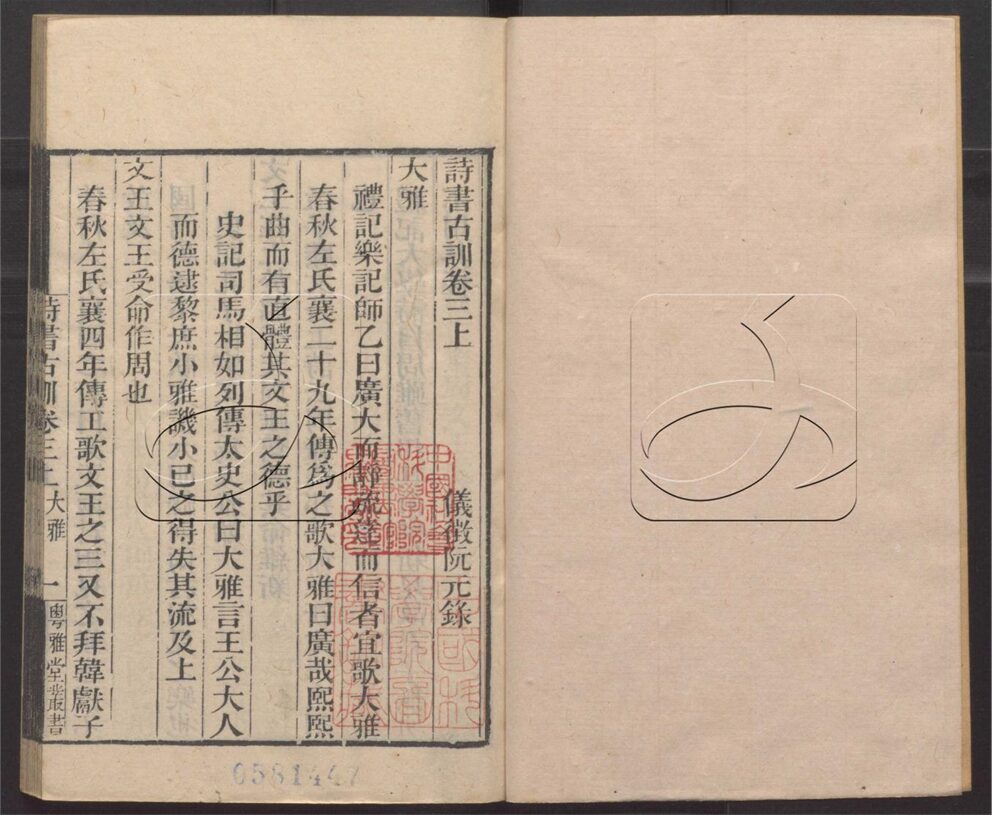 詩書古訓卷三上
儀徵阮元錄
大雅
禮記樂記師乙曰廣大而靜疏達而信者宜歌大雅
春秋左氏襄二十九年傳爲之歌大雅曰廣哉熙熙
乎曲而有直體其文王之德乎
史記司馬相如列傳太史公曰大雅言王公大人
而德逮黎庶小雅譏小己之得失其流及上
文王文王受命作周也
春秋左氏襄四年傳工歌文王之三又不拜韓獻子
詩書古訓卷三上 大雅 一 粵雅堂叢書
0581447